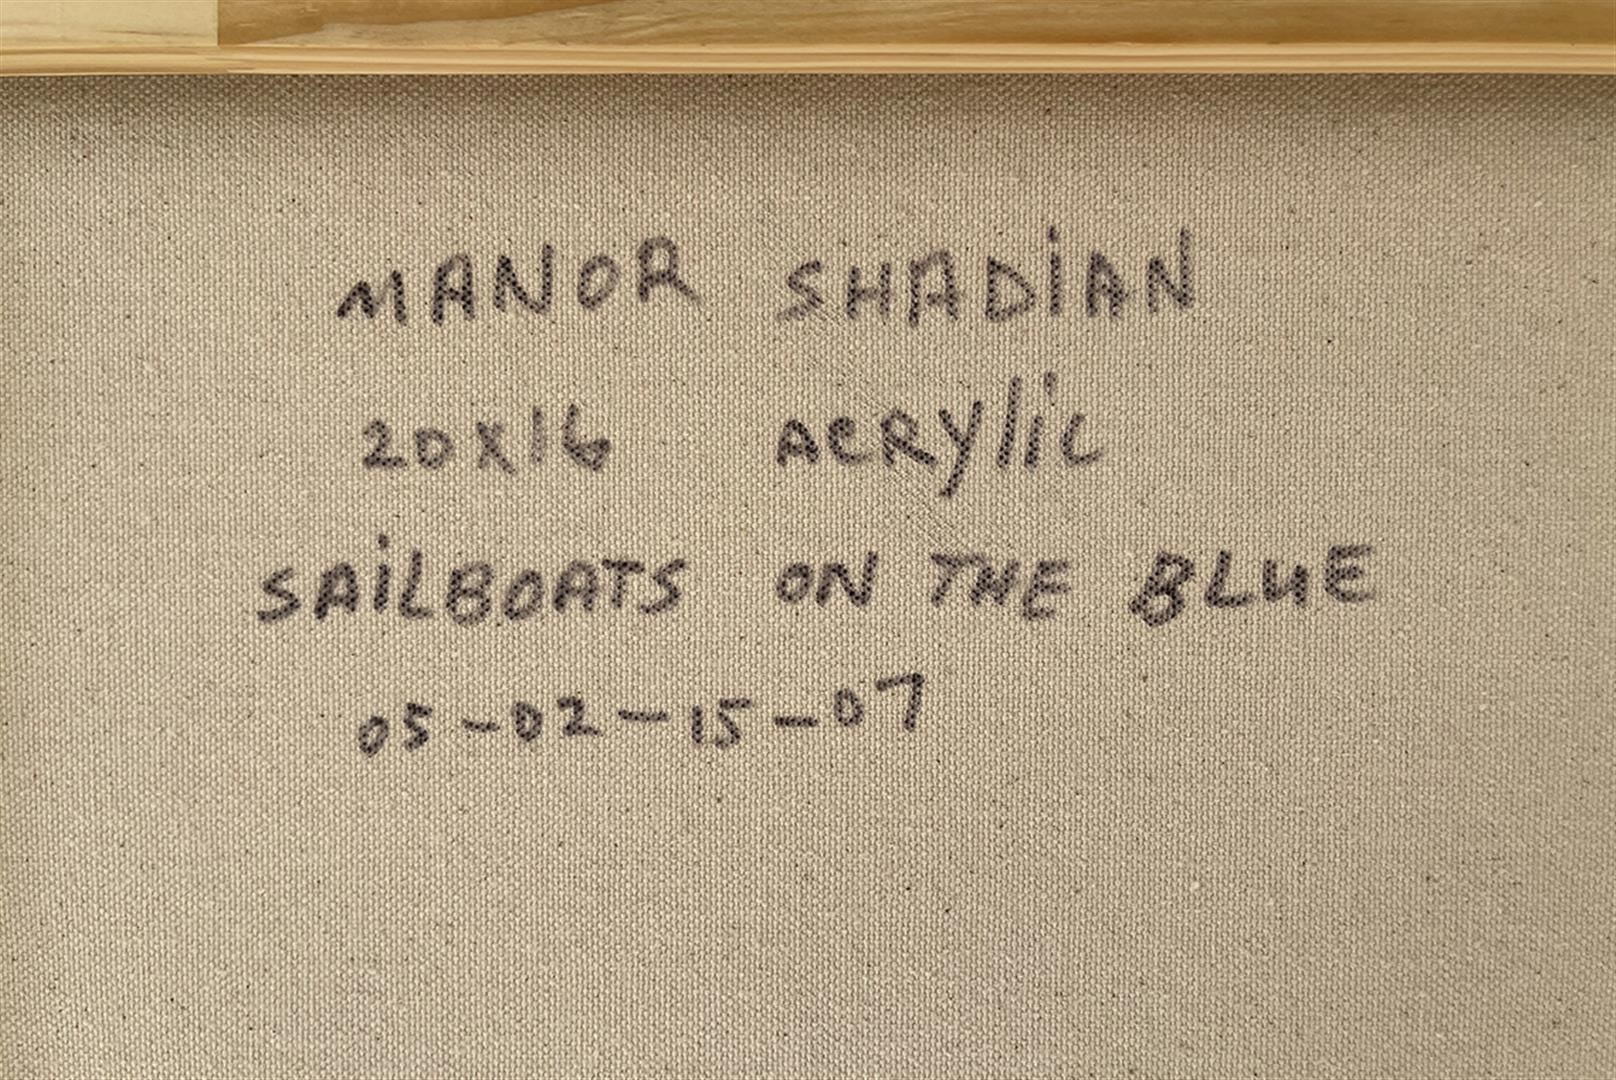 MANOR SHADiAN
20X16 ACRYliC
SAiLBOATS ON THE BLUE
05-02-15-07